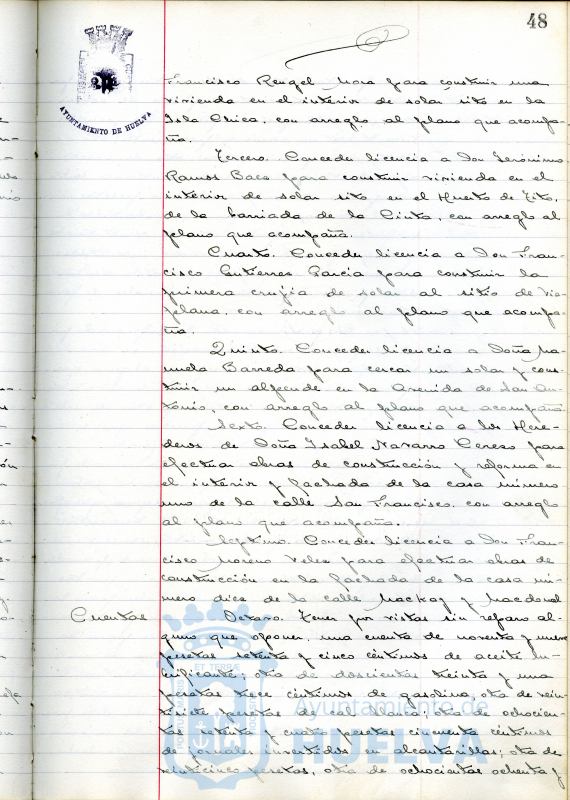 48
AYUNTAMIENTO DE HUELVA
Francisco Rengel Mora para construir una
vivienda en el interior de solar sito en la
Isla Chica, con arreglo al plano que acompa-
ña.
Tercero. Conceder licencia a Don Jerónimo
Ramos Baca para construir vivienda en el
interior de solar sito en el Huerto de Tito,
de la barriada de la Cinta, con arreglo al
plano que acompaña.
Cuarto. Conceder licencia a Don Fran-
cisco Gutierrez Garcia para construir la
primera crujia de solar al sitio de Vie-
plana, con arreglo al plano que acompa-
ña.
Quinto. Conceder licencia a Doña Ma-
nuela Barreda para cercar un solar y cons-
truir un alpende en la Avenida de San An-
tonio, con arreglo al plano que acompaña.
Sexto. Conceder licencia a los Here-
deros de Doña Isabel Navarro Cerezo para
efectuar obras de construcción y reforma en
el interior y fachada de la casa número
uno de la calle San Francisco, con arreglo
al plano que acompaña.
Septimo. Conceder licencia a Don Fran-
cisco Moreno Velez para efectuar obras de
construcción en la fachada de la casa nú-
mero diez de la calle Mackay y Macdonal
Cuentas
Octavo. Tener por vistas sin reparo al-
guno que oponer, una cuenta de noventa y nueve
pesetas setenta y cinco céntimos de aceite lu-
brificante; otra de doscientas treinta y una
pesetas trece céntimos de gasolina, otra de vein-
tisiete pesetas de cal blanca; otra de ochocien-
tas setenta y cuatro pesetas cincuenta céntimos
de jornales invertidos en alcantarillas; otra de
veinticinco pesetas, otra de ochocientas ochenta y
Ayuntamiento de
HUELVA